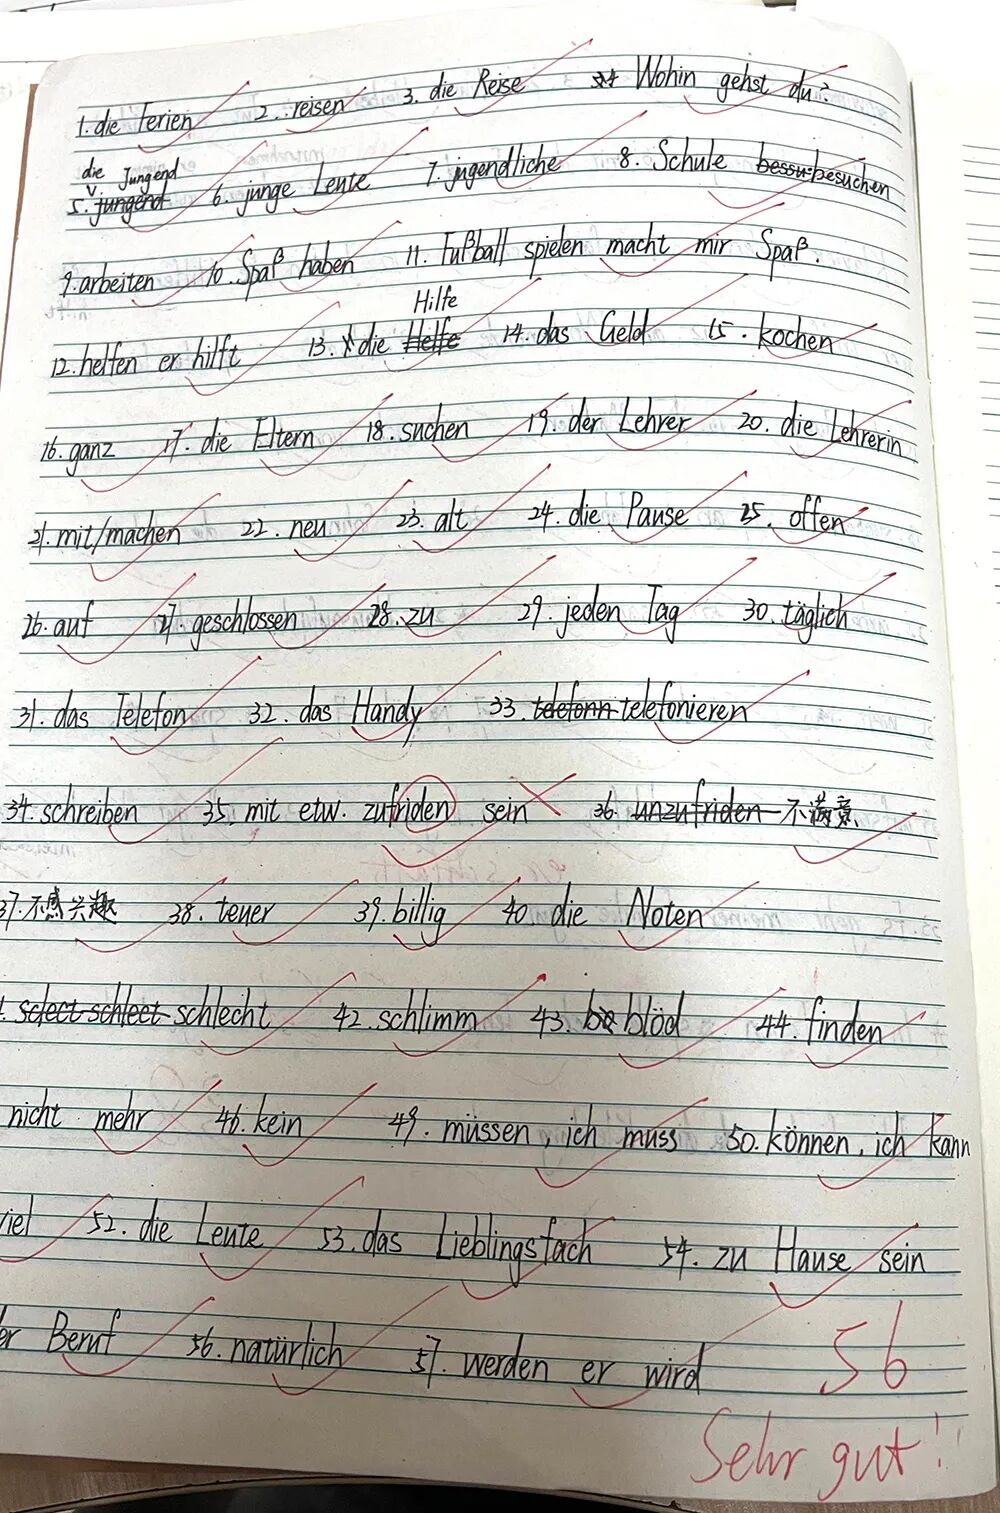 1. die Ferien 2. reisen 3. die Reise 4 Wohin gehst du?
die Jungend
5. jungend 6. junge Leute 7. jugendliche 8. Schule bessu besuchen
9. arbeiten 10. Spaß haben 11. Fußball spielen macht mir Spaß.
Hilfe
12. helfen er hilft 13. die Helfe 14. das Geld 15. kochen
16. ganz 17. die Eltern 18. suchen 19. der Lehrer 20. die Lehrerin
21. mit/machen 22. neu 23. alt 24. die Pause 25. offen
26. auf 27. geschlossen 28. zu 29. jeden Tag 30. täglich
31. das Telefon 32. das Handy 33. telefonn telefonieren
34. schreiben 35. mit etw. zufriden sein 36. unzufriden 不满意
37. 不感兴趣 38. teuer 39. billig 40. die Noten
. sclect schlect schlecht 42. schlimm 43. blöd 44. finden
nicht mehr 46. kein 49. müssen, ich muss 50. können, ich kann
viel 52. die Leute 53. das Lieblingsfach 54. zu Hause sein
er Beruf 56. natürlich 57. werden er wird
56
Sehr gut!